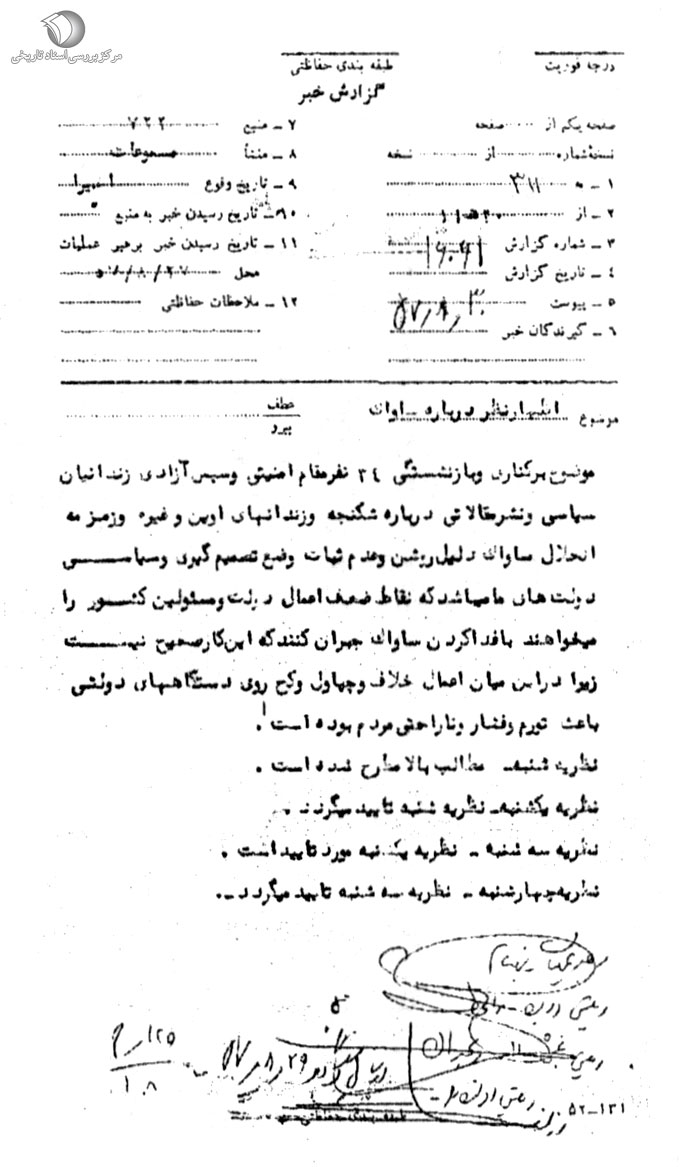 مرکز بررسی اسناد تاریخی
درجه فوریت
طبقه بندی حفاظتی
گزارش خبر
صفحه یکم از صفحه
نسخه شماره از نسخه
۱ ــ به ۳۱۱
۲ ــ از
۳ ــ شماره گزارش
۴ ــ تاریخ گزارش
۵ ــ پیوست
۶ ــ گیرندگان خبر
۷ ــ منبع ۷۲۲
۸ ــ منشأ مسموعات
۹ ــ تاریخ وقوع اخیرا
۱۰ ــ تاریخ رسیدن خبر به منبع
۱۱ ــ تاریخ رسیدن خبر برهبر عملیات
محل
۱۲ ــ ملاحظات حفاظتی
موضوع اظهارنظر درباره ساواک
عطف
پیرو
موضوع برکناری وبازنشستگی ۳۴ نفرمقام امنیتی وسپس آزادی زندانیان
سیاسی ونشرمقالاتی درباره شکنجه وزندانهای اوین وغیره وزمزمه
انحلال ساواک دلیل روشن وعدم ثبات وضع تصمیم گیری وسیاسی
دولت های مامیباشدکه نقاط ضعف اعمال دولت ومسئولین کشور را
میخواهند بافداکردن ساواک جبران کنندکه این کارصحیح نیست
زیرا دراین میان اعمال خلاف وچپاول وکج روی دستگاههای دولتی
باعث تورم وفشار وناراحتی مردم بوده است .
نظریه شنبه ــ مطالب بالامطرح شده است .
نظریه یکشنبه ــ نظریه شنبه تایید میگردد .
نظریه سه شنبه ــ نظریه یکشنبه مورد تاییداست .
نظریه چهارشنبه ــ نظریه سه شنبه تایید میگردد ــ.
طبقه بندی حفاظتی
۵۲ــ۱۳۱